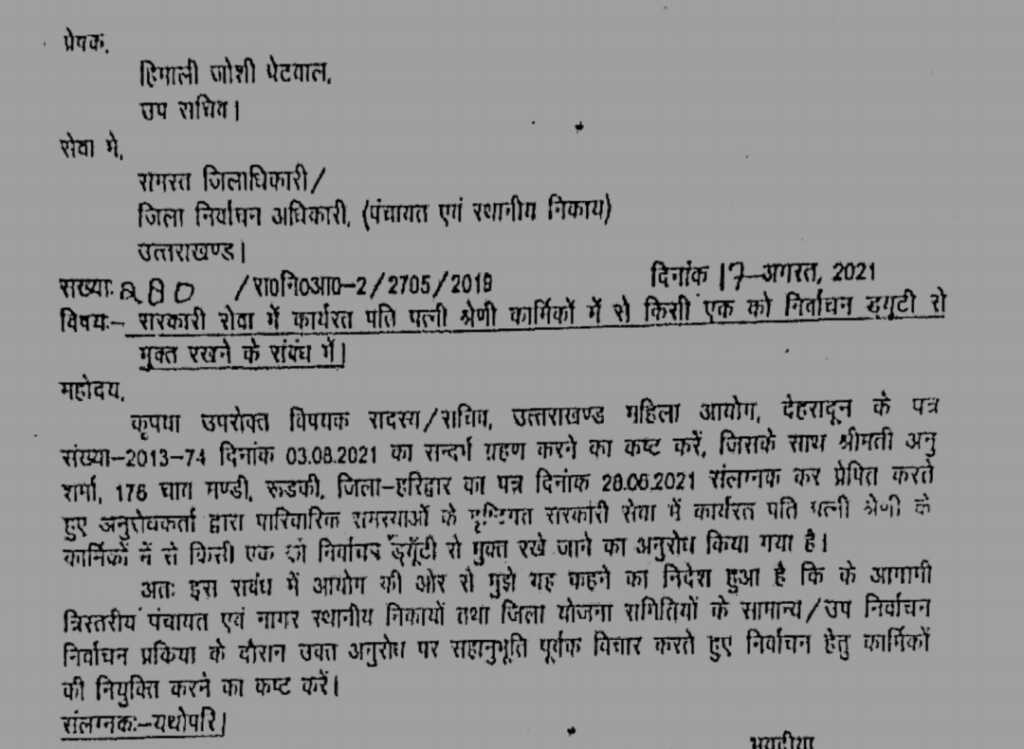 प्रेषक,
हिमाली जोशी पेटवाल,
उप सचिव।
सेवा में,
समस्त जिलाधिकारी/
जिला निर्वाचन अधिकारी, (पंचायत एवं स्थानीय निकाय)
उत्तराखण्ड।
संख्याः 280 /रा0नि0आ0-2/2705/2019 दिनांक 17-अगस्त, 2021
विषयः- सरकारी सेवा में कार्यरत पति पत्नी श्रेणी कार्मिकों में से किसी एक को निर्वाचन ड्यूटी से
मुक्त रखने के संबंध में।
महोदय,
कृपया उपरोक्त विषयक सदस्य/सचिव, उत्तराखण्ड महिला आयोग, देहरादून के पत्र
संख्या-2013-74 दिनांक 03.08.2021 का सन्दर्भ ग्रहण करने का कष्ट करें, जिसके साथ श्रीमती अनु
शर्मा, 176 मण्डी, रूडकी, जिला-हरिद्वार का पत्र दिनांक 28.06.2021 संलग्नक कर प्रेषित करते
हुए अनुरोधकर्ता द्वारा पारिवारिक समस्याओं के दृष्टिगत सरकारी सेवा में कार्यरत पति पत्नी श्रेणी के
कार्मिकों में से किसी एक को निर्वाचन ड्यूटी से मुक्त रखे जाने का अनुरोध किया गया है।
अतः इस सबंध में आयोग की ओर से मुझे यह कहने का निदेश हुआ है कि के आगामी
त्रिस्तरीय पंचायत एवं नागर स्थानीय निकायों तथा जिला योजना समितियों के सामान्य/उप निर्वाचन
निर्वाचन प्रकिया के दौरान उक्त अनुरोध पर सहानुभूति पूर्वक विचार करते हुए निर्वाचन हेतु कार्मिकों
की नियुक्ति करने का कष्ट करें।
संलग्नकः-यथोपरि।